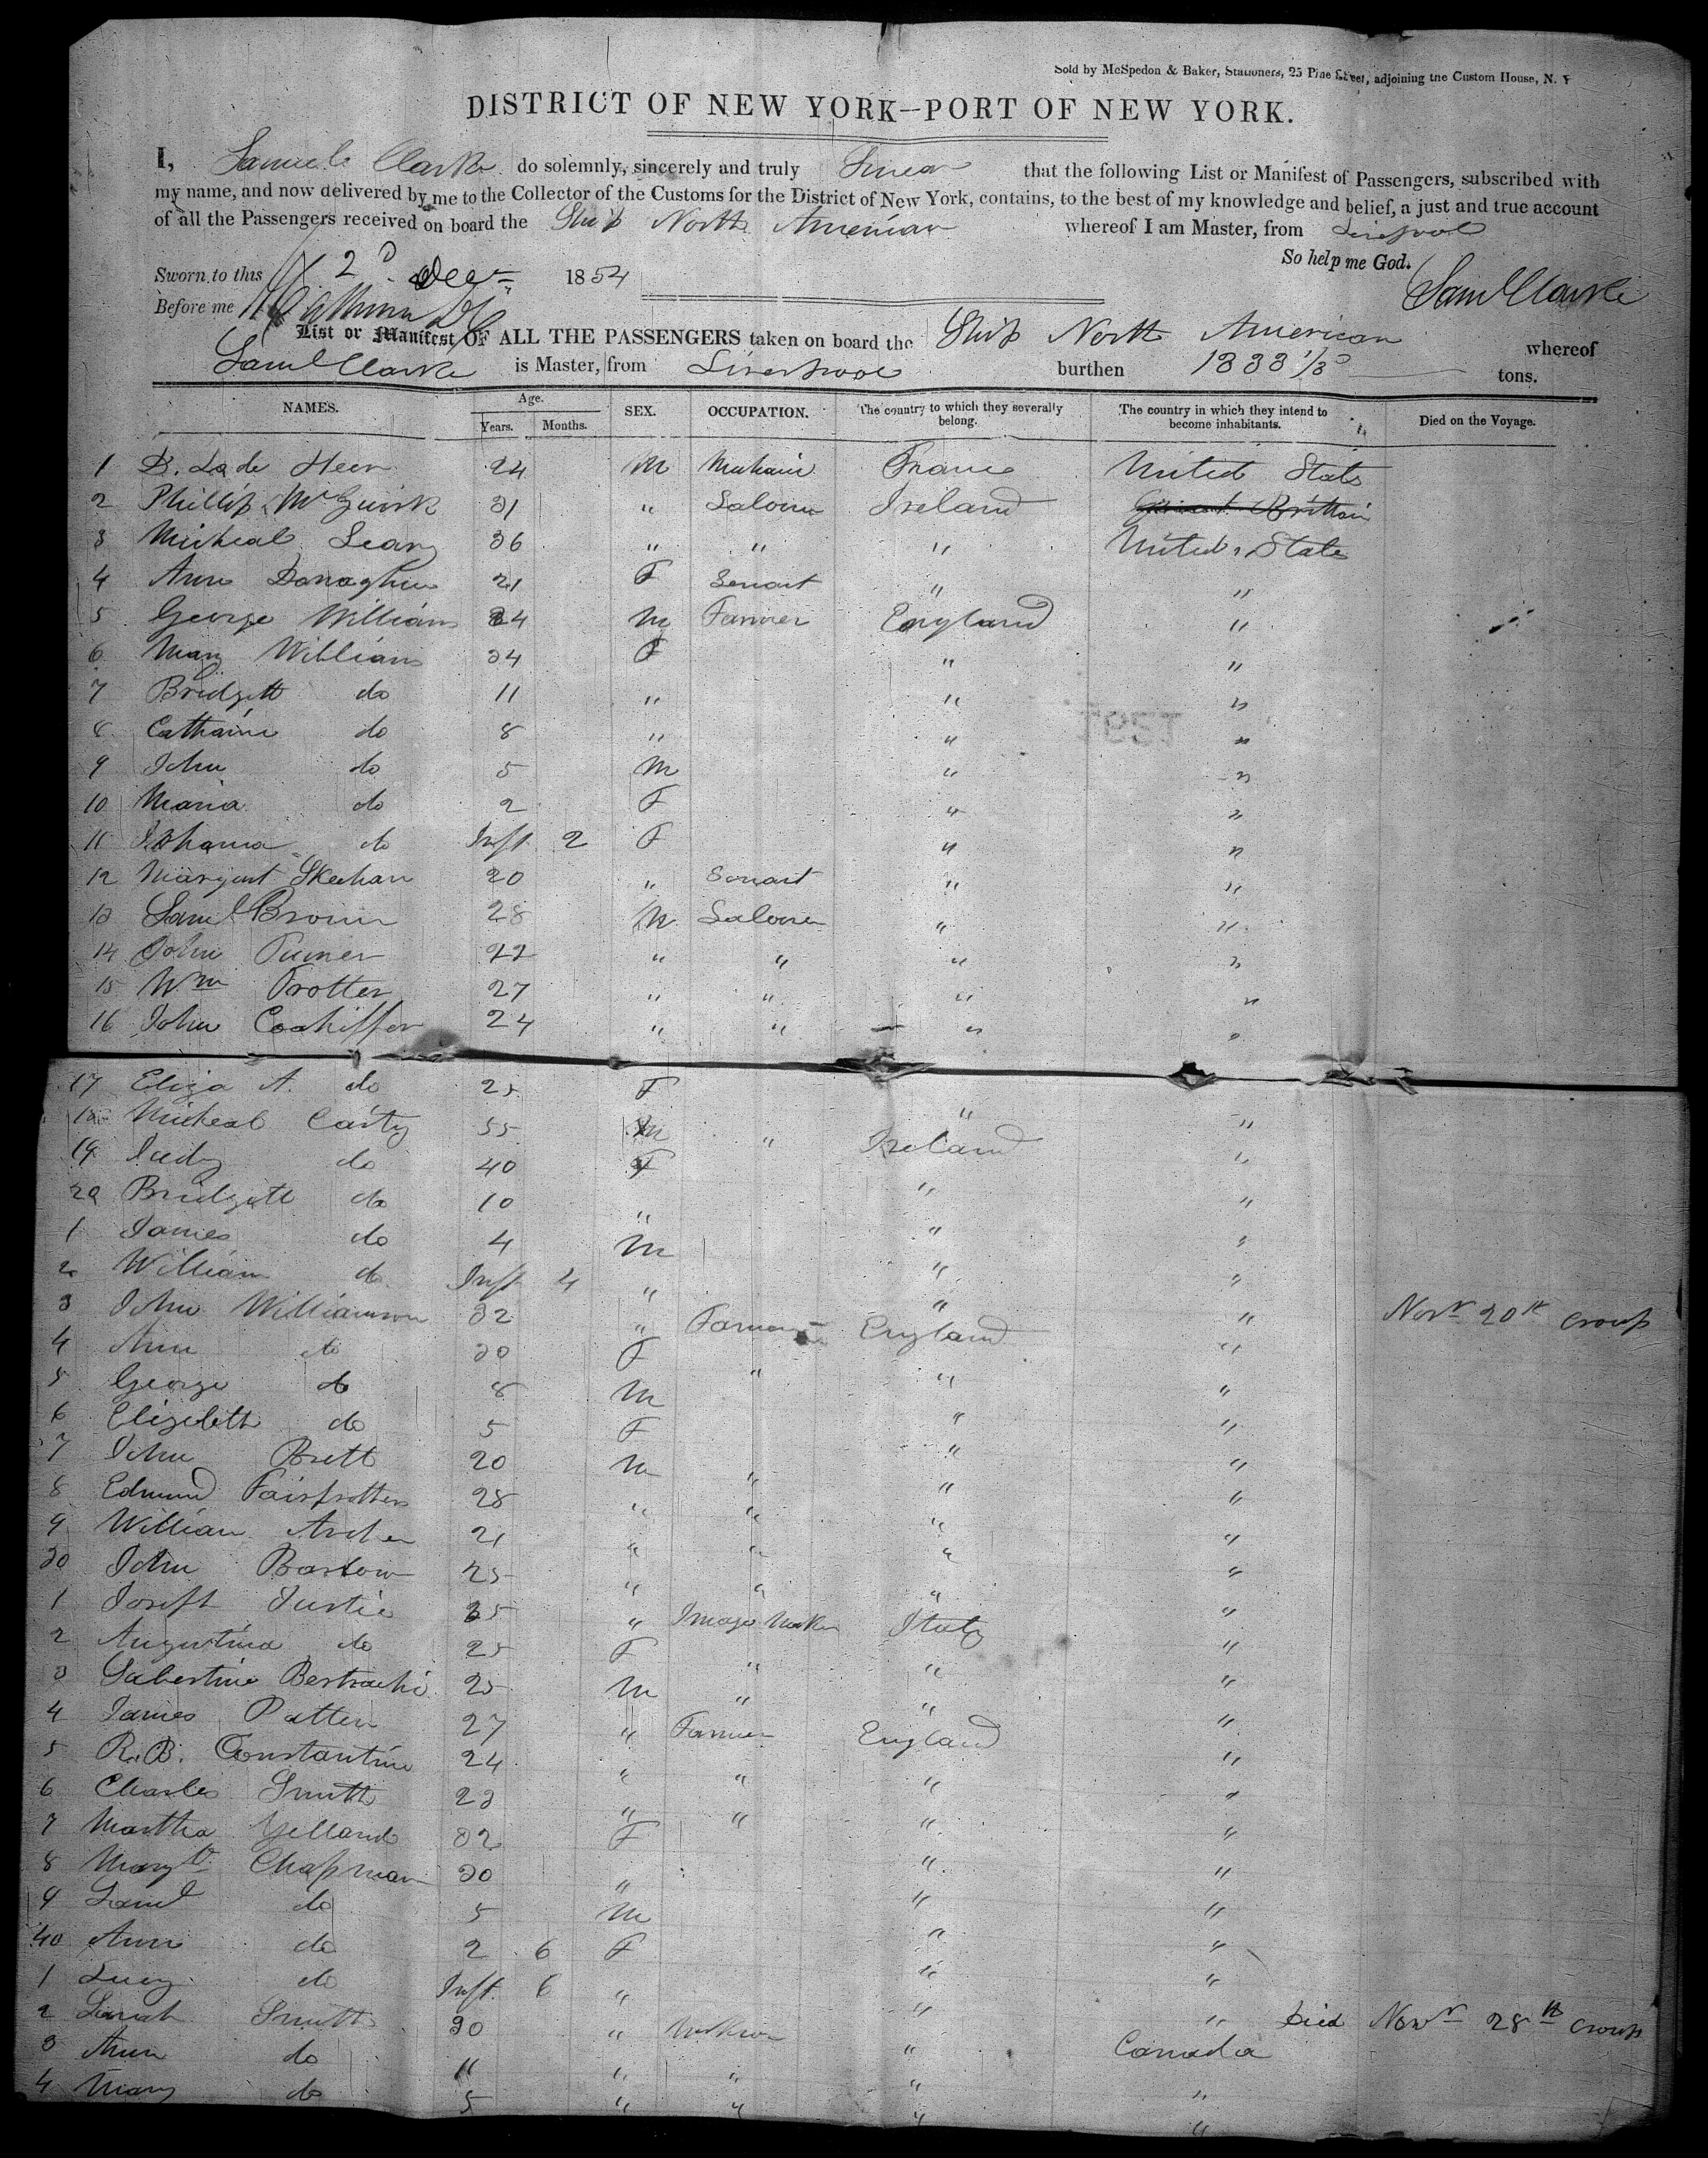 Sold by McSpedon & Baker, Stationers, 25 Pine Street, adjoining the Custom House, N. Y
DISTRICT OF NEW YORK—PORT OF NEW YORK.
I, Samuel Clarke do solemnly, sincerely and truly Swear that the following List or Manifest of Passengers, subscribed with
my name, and now delivered by me to the Collector of the Customs for the District of New York, contains, to the best of my knowledge and belief, a just and true account
of all the Passengers received on board the Ship North American whereof I am Master, from Liverpool
So help me God.
Sworn to this 2d Decr 1854
Saml Clarke
Before me
List or Manifest OF ALL THE PASSENGERS taken on board the Ship North American whereof
Saml Clarke is Master, from Liverpool burthen 1333 1/3 tons.
NAMES. Age. Years. Months. SEX. OCCUPATION. The country to which they severally belong. The country in which they intend to become inhabitants. Died on the Voyage.
1 24 M France United States
2 Phillip McGuirk 31 " Ireland Great Brittain
3 Micheal Leary 36 " " " United State
4 Ann Donaghue 21 F Servant " "
5 George Williams 34 M Farmer England "
6 Mary Williams 34 F " "
7 Bridgett do 11 " " "
8 Catharine do 8 " " "
9 John do 5 M " "
10 Maria do 2 F " "
11 Johanna do Inft 2 F " "
12 Margaret Skeehan 20 " Servant " "
13 Saml Brown 28 M " "
14 John Turner 22 " " " "
15 Wm Trotter 27 " " " "
16 John 24 " " " "
17 Eliza A. do 25 F " "
18 Micheal Carty 55 M " Ireland "
19 Judy do 40 F " "
20 Bridgett do 10 " " "
1 James do 4 M " "
2 William do Inft 4 " " "
3 John Williamson 32 " Farmer England " Novr 20th croup
4 Ann do 30 F " " "
5 George do 8 M " "
6 Elizebeth do 5 F " "
7 John Brett 20 M " " "
8 Edmund 28 " " " "
9 William Archer 21 " " " "
30 John Barlow 25 " " " "
1 Joseph 35 " Image Maker Italy "
2 Augustina do 25 F " " "
3 25 M " " "
4 James Patten 27 " Farmer England "
5 R.B. Constantine 24 " " " "
6 Charles Smith 23 " " " "
7 Martha Yelland 32 F " "
8 Chapman 30 " " "
9 Saml do 5 M " "
40 Ann do 2 6 F " "
1 Lucy do Inft 6 " " " Died Novr 28th croup
2 Sarah Smith 30 " " Canada
3 Ann do 11 " " " "
4 Mary do 5 " " " "